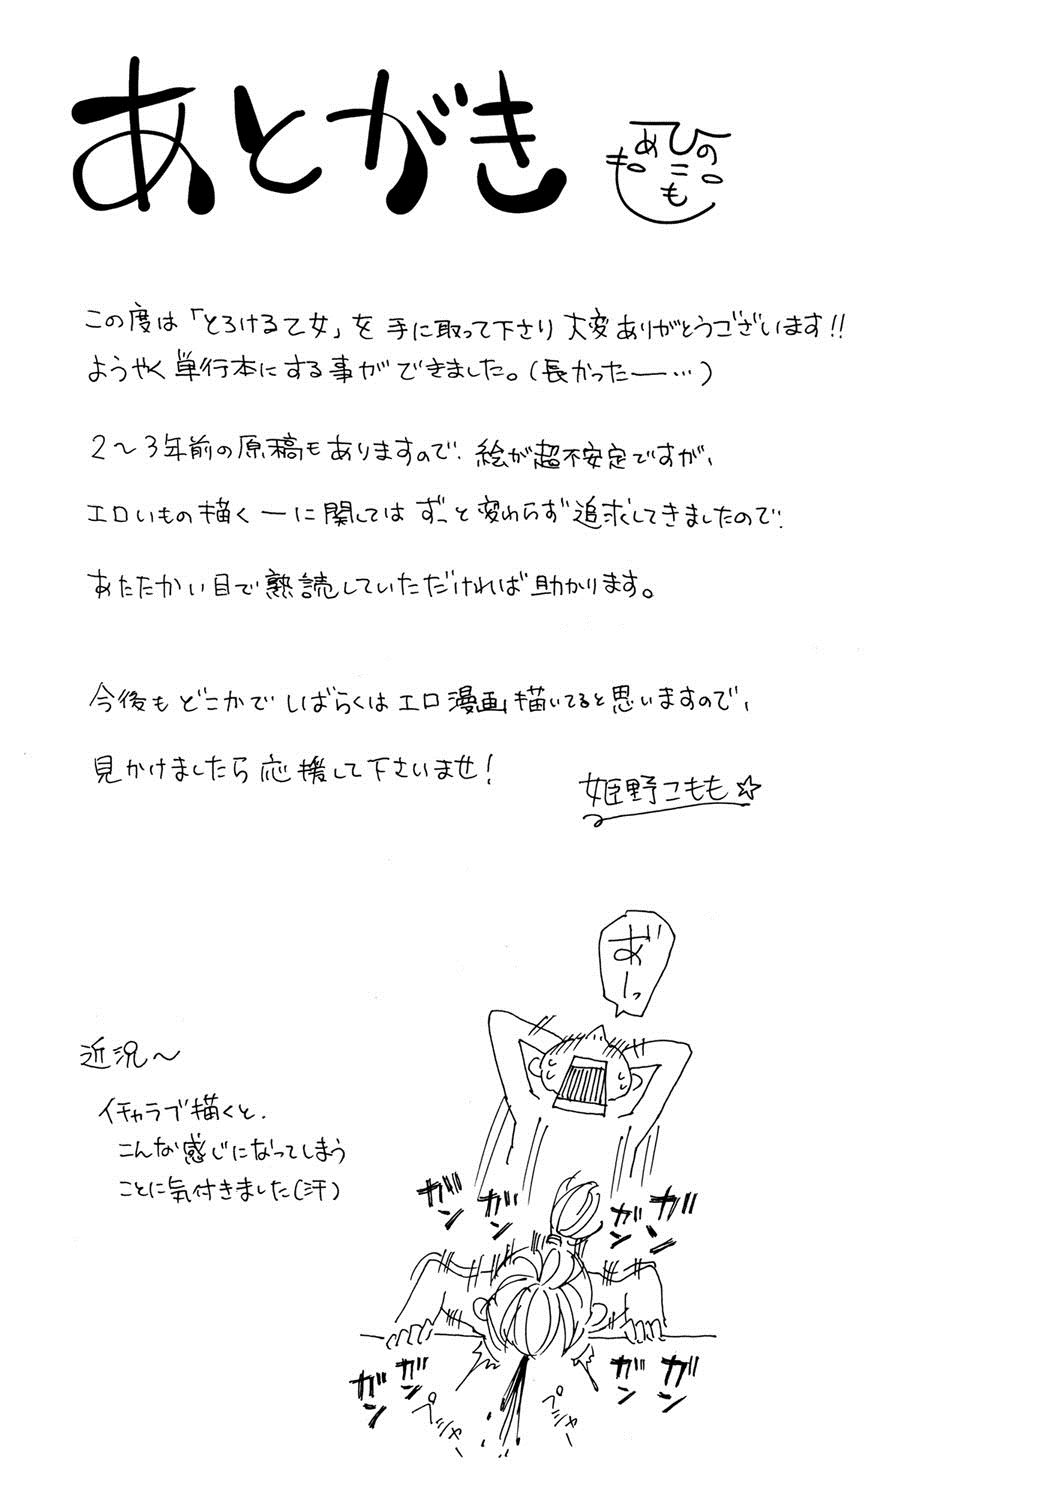 あとがき
ひめの
こ
もも
この度は「とろける乙女」を手に取って下さり大変ありがとうございます!!
ようやく単行本にする事ができました。(長かったー…)
2〜3年前の原稿もありますので、絵が超不安定ですが、
エロいもの描くーに関してはずっと変わらず追求してきましたので、
あたたかい目で熟読していただければ助かります。
今後もどこかでしばらくはエロ漫画描いてると思いますので、
見かけましたら応援して下さいませ!
姫野こもも☆
あ゛ーっ
近況〜
イチャラブ描くと、
こんな感じになってしまう
ことに気付きました(汗)
ガン
ガン
ガン
ガン
ガン
ガン
ガン
ガン
ペシャー
ペシャー